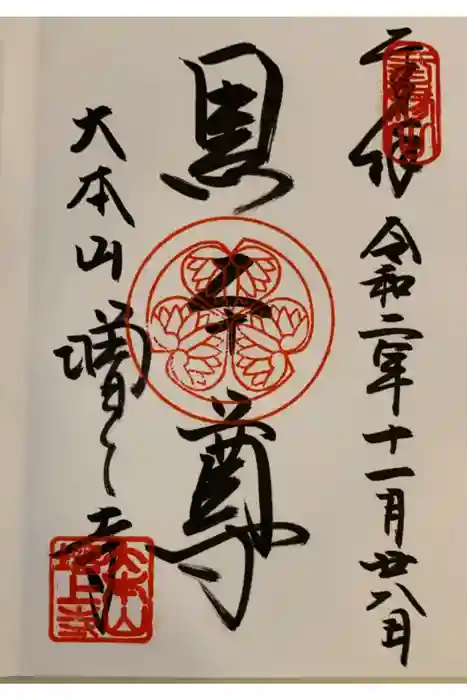 令和二年十一月廿八日
黒本尊
大本山増上寺
大本山
増上寺